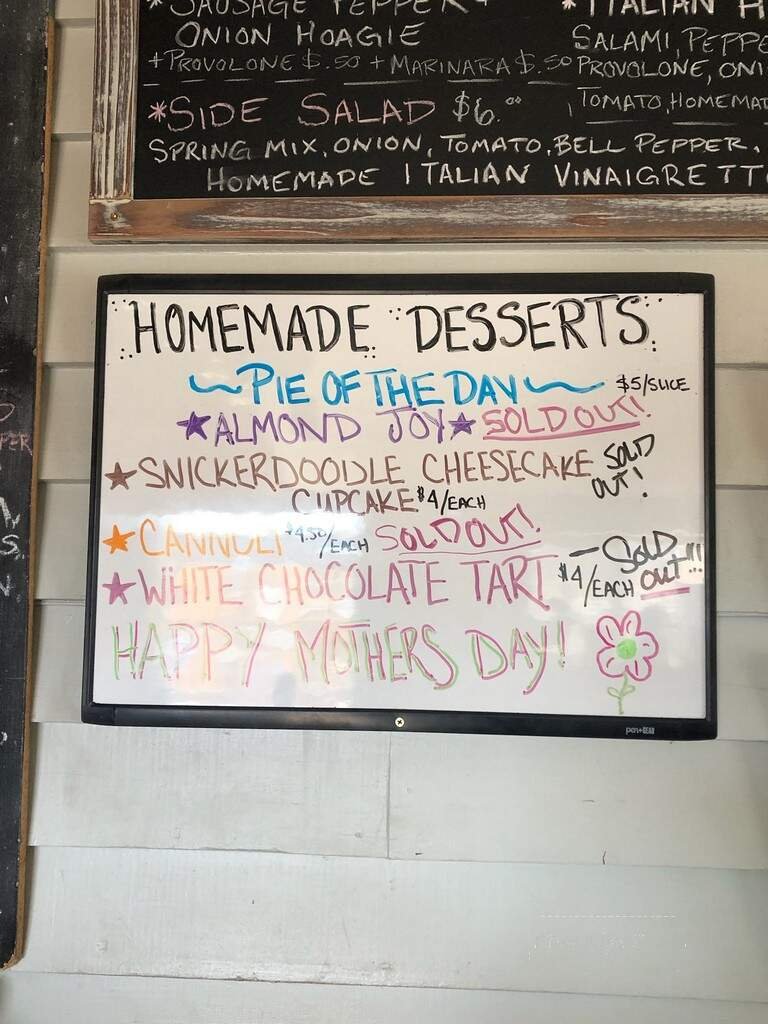 *SAUSAGE PEPPER +
ONION HOAGIE
+PROVOLONE $.50 + MARINARA $.50
*SIDE SALAD $6.00
SPRING MIX, ONION, TOMATO, BELL PEPPER,
HOMEMADE ITALIAN VINAIGRETT
*ITALIAN H
SALAMI, PEPPE
PROVOLONE, ONI
TOMATO, HOMEMA
HOMEMADE DESSERTS
~PIE OF THE DAY~ $5/SLICE
★ALMOND JOY★ SOLD OUT!
★SNICKERDOODLE CHEESECAKE SOLD OUT!
CUPCAKE $4/EACH
★CANNOLI $4.50/EACH SOLD OUT!
★WHITE CHOCOLATE TART $4/EACH - SOLD OUT!!!
HAPPY MOTHERS DAY!